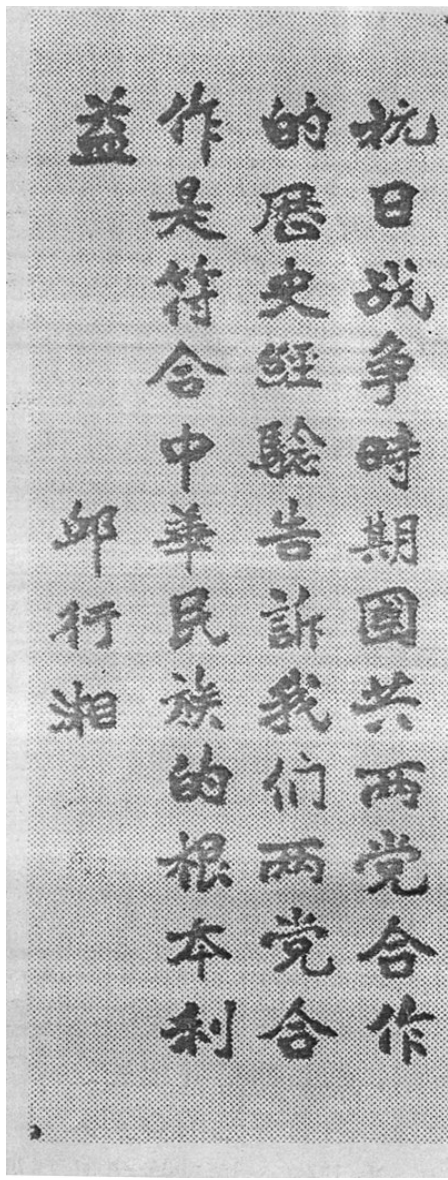 抗日战争時期國共两党合作
的歷史經驗告訴我们两党合
作是符合中華民族的根本利
益
邱行湘